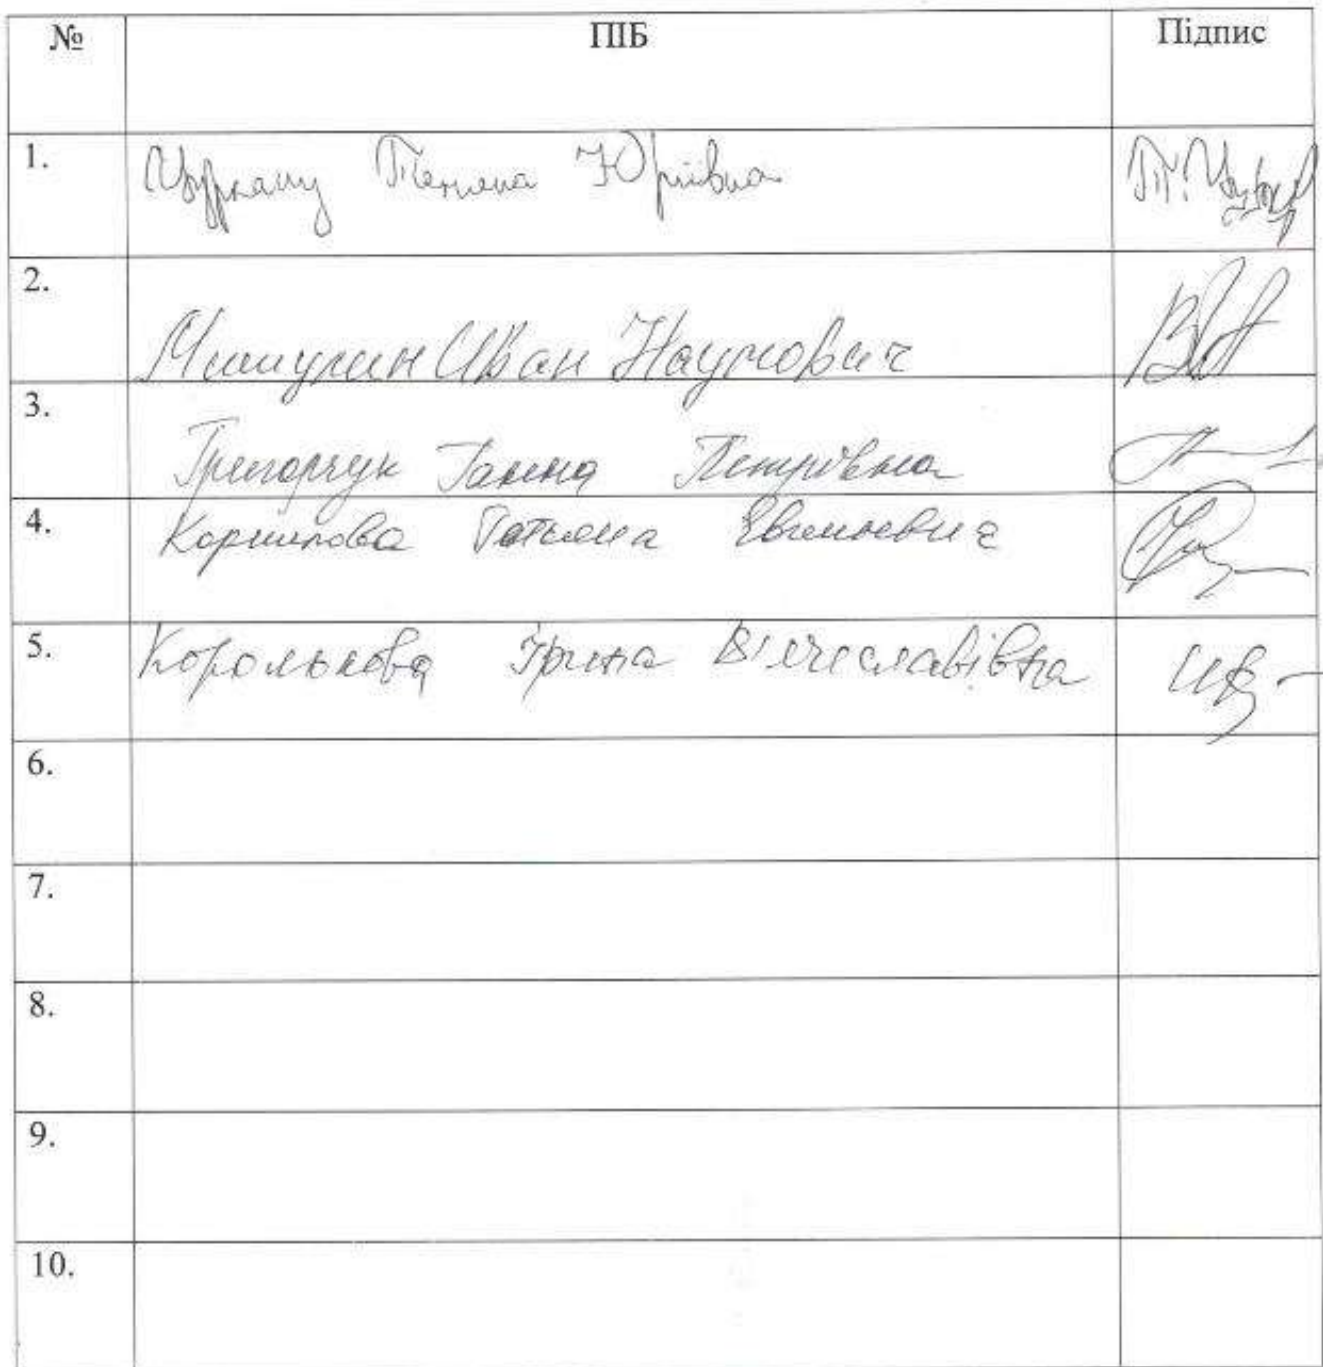 № ПІБ Підпис
1. Цуркану Тетяна Юріївна
2. Мишурин Иван Наумович
3. Григорчук Ганна Петрівна
4. Татьяна Евгеньевна
5. Королькова Ірина Вячеславівна
6.
7.
8.
9.
10.